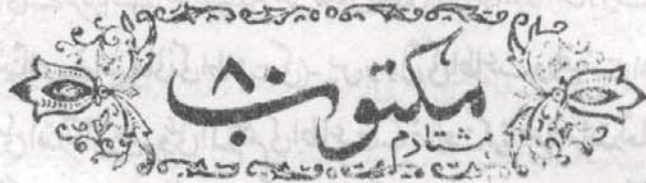 مکتوب ۸۰
ہشتادم